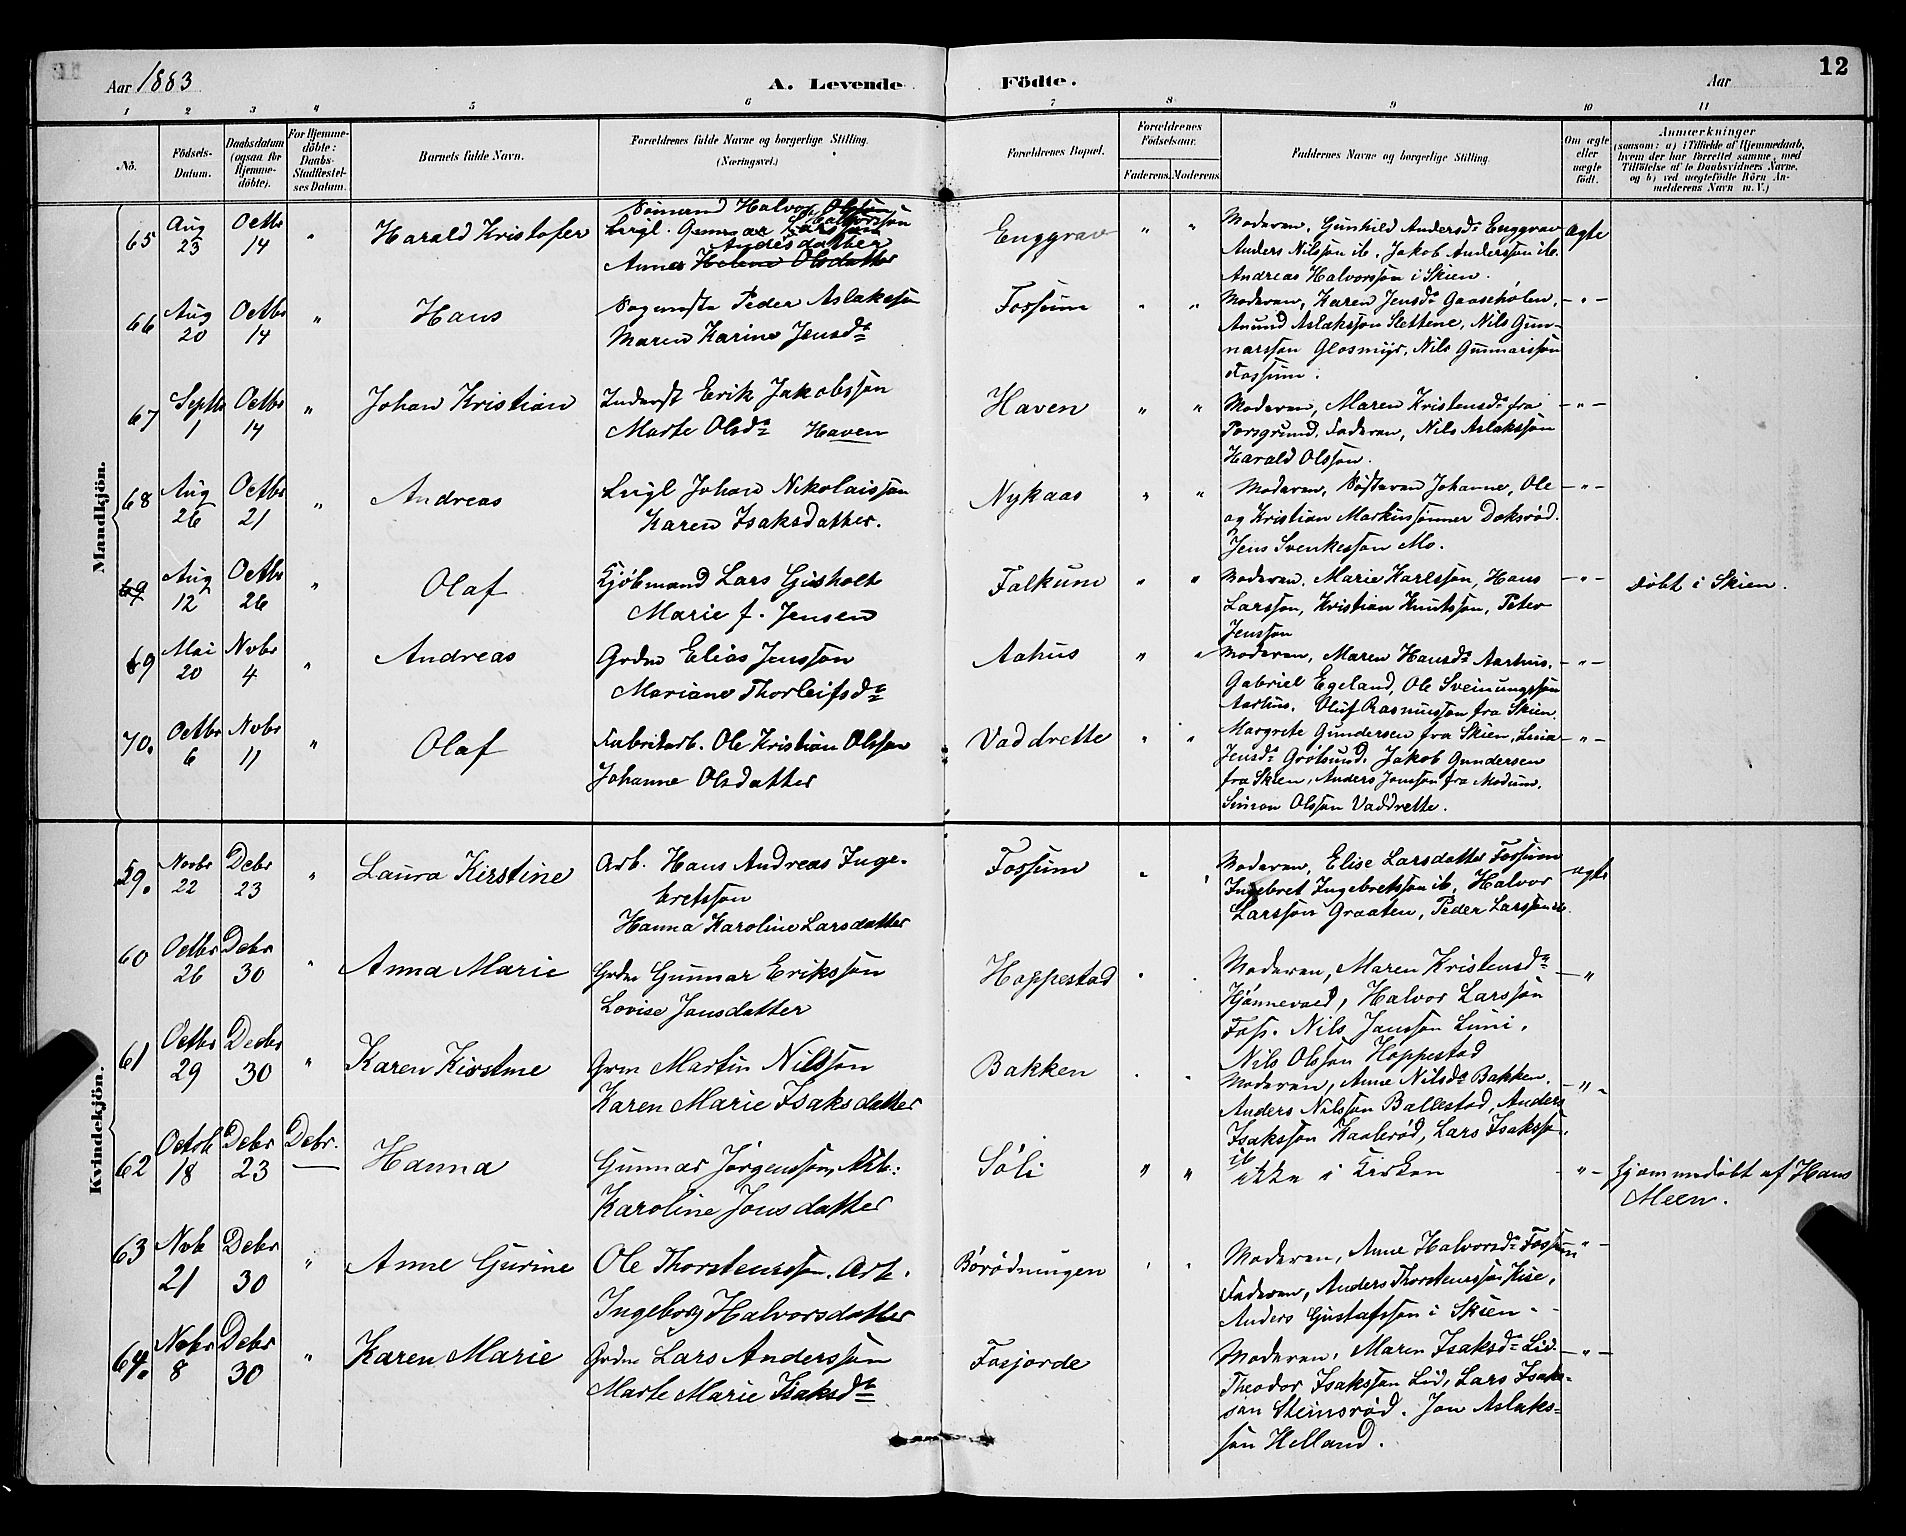 Aar 1883 A. Levende Födte. Aar 12
1 2 3 4 5 6 7 8 9 10 11
No. Födsels-Datum. Daabsdatum (ogsaa for Hjemmedöbte). For Hjemmedöbte: Daabs-Stadfæstelses Datum. Barnets fulde Navn. Forældrenes fulde Navne og borgerlige Stilling. (Næringsvei.) Forældrenes Bopæl. Forældrenes Födselsaar. Faderens. Moderens. Faddernes Navne og borgerlige Stilling. Om ægte eller uægte födt. Anmærkninger (saasom: a) i Tilfælde af Hjemmedaab, hvem der har forrettet samme, med Tilföielse af to Daabsvidners Navne, og b) ved uægtefödte Börn Anmelderens Navn m. V.)
Mandkjön.
65 Aug 23 Octbr 14 " Harald Kristofer
Sømand Halvor Olsson
Leigl. Gunnar Halvorsson
Andersdatter
Anne Helene Olsdatter
Enggrav " "
Moderen, Gunhild Andersdr Enggrav
Anders Nilsson ib. Jakob Andersson ib.
Andreas Halvorsson i Skien.
ægte
66 Aug 20 Octbr 14 " Hans
Sagmester Peder Aslaksson
Maren Karine Jensdr
Fossum " "
Moderen, Karen Jensdr Gaaseholen,
Anund Aslaksson Slettene, Nils Gun-
narsson Glosmyr, Nils Gunnarsson
Fossum.
- " -
67 Septbr 1 Octbr 14 " Johan Kristian
Inderst Erik Jakobsson
Marte Olsdr Haven
Haven " "
Moderen, Maren Kristensdr fra
Porsgrund, Faderen, Nils Aslaksson
Harald Olsson.
- " -
68 Aug 26 Octbr 21 " Andreas
Leigl Johan Nikolaisson
Karen Isaksdatter.
Nykaas " "
Moderen, Søsteren Johanne, Ole
og Kristian Markussønner Doksrød.
Jens Svenkesson Mo.
- " -
69 Aug 12 Octbr 26 " Olaf
Kjöbmand Lars Gisholt
Marie f. Jensen
Falkum " "
Moderen, Marie Karlsson, Hans
Larsson, Kristian Knutsson, Peter
Jensson
- " - Döbt i Skien.
69 Mai 20 Novbr 4 " Andreas
Grdm Elias Jensson
Mariane Thorleifsdr
Aahus " "
Moderen, Maren Hansdr Aarhus.
Gabriel Egeland, Ole Sveinungsson
Aarhus. Oluf Rasmusson fra Skien.
- " -
70. Octbr 6 Novbr 11 " Olaf
Fabrikarb. Ole Kristian Olsson
Johanne Olsdatter
Vaddrette " "
Margrete Gundersen fra Skien, Lina
Jensdr Grotsund. Jakob Gundersen
fra Skien, Anders Jonsson fra Modum,
Simon Olsson Vaddrette.
- " -
Kvindekjön.
59. Novbr 22 Debr 23 " Laura Kirstine
Arb. Hans Andreas Inge-
bretsson
Hanna Karoline Larsdatter
Fossum " "
Moderen, Elise Larsdatter Fossum
Ingebret Ingebretsson ib, Halvor
Larsson Graaten, Peder Larsson ib.
ægte
60 Octbr 26 Debr 30 " Anna Marie
Grdm Gunnar Eriksson
Lovise Jonsdatter
Hoppestad " "
Moderen, Maren Kristensdr
Kjønnevald, Halvor Larsson
Foss. Nils Jonsson Limi.
Nils Olsson Hoppestad
- "
61 Octbr 29 Decbr 30 " Karen Kirstine
Grdm Martin Nilsson
Karen Marie Isaksdatter
Bakken " "
Moderen, Anne Nilsdr Bakken.
Anders Nilsson Ballestad, Anders
Isaksson Kaalerød, Lars Isaksso.
ib
- " -
62 Octob 18 Debr 23 Debr. — Hanna
Gunnar Jørgensson, Arb.:
Karoline Jonsdatter
Søli " "
ikke i Kirken
" - hjemmedöbt af Hans
Meen.
63 Nob 21 Debr 30 " Anne Gurine
Ole Thorstensson. Arb.
Ingeborg Halvorsdatter
Børødningen " "
Moderen, Anne Halvorsdr Fossum
Faderen, Anders Thorstensson Kise,
Anders Gustafsson i Skien.
" -
64. Nobr 8 Debr 30 " Karen Marie
Grdm Lars Andersson
Marte Marie Isaksdr
Fosjorde
Moderen, Maren Isaksdr Lid
Theodor Isaksson Lid, Lars Isaks-
son Steinsrød. Jon Aslaks-
son Helland.
- " -